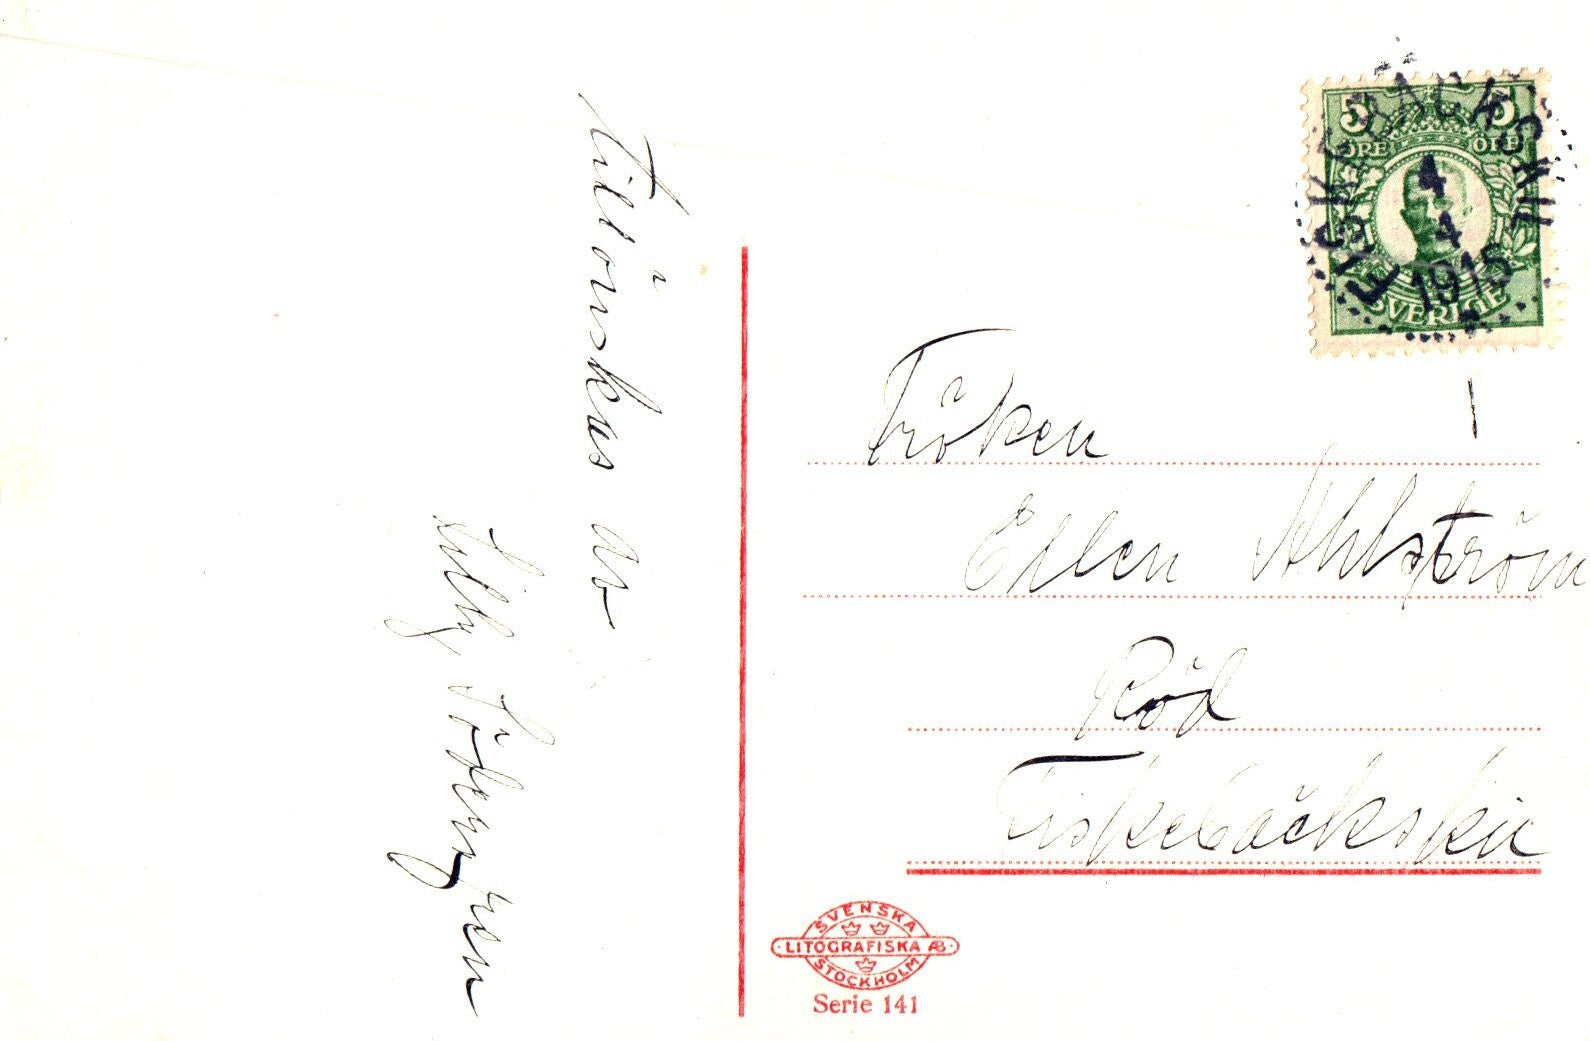 tillönskas av
Lilly Södergren
5 5
ÖRE ÖRE
SVERIGE
FISKEBÄCKSKIL
4
4
1915
Fröken
Ellen Ahlström
Röd
Fiskebäckskil
SVENSKA
LITOGRAFISKA AB
STOCKHOLM
Serie 141